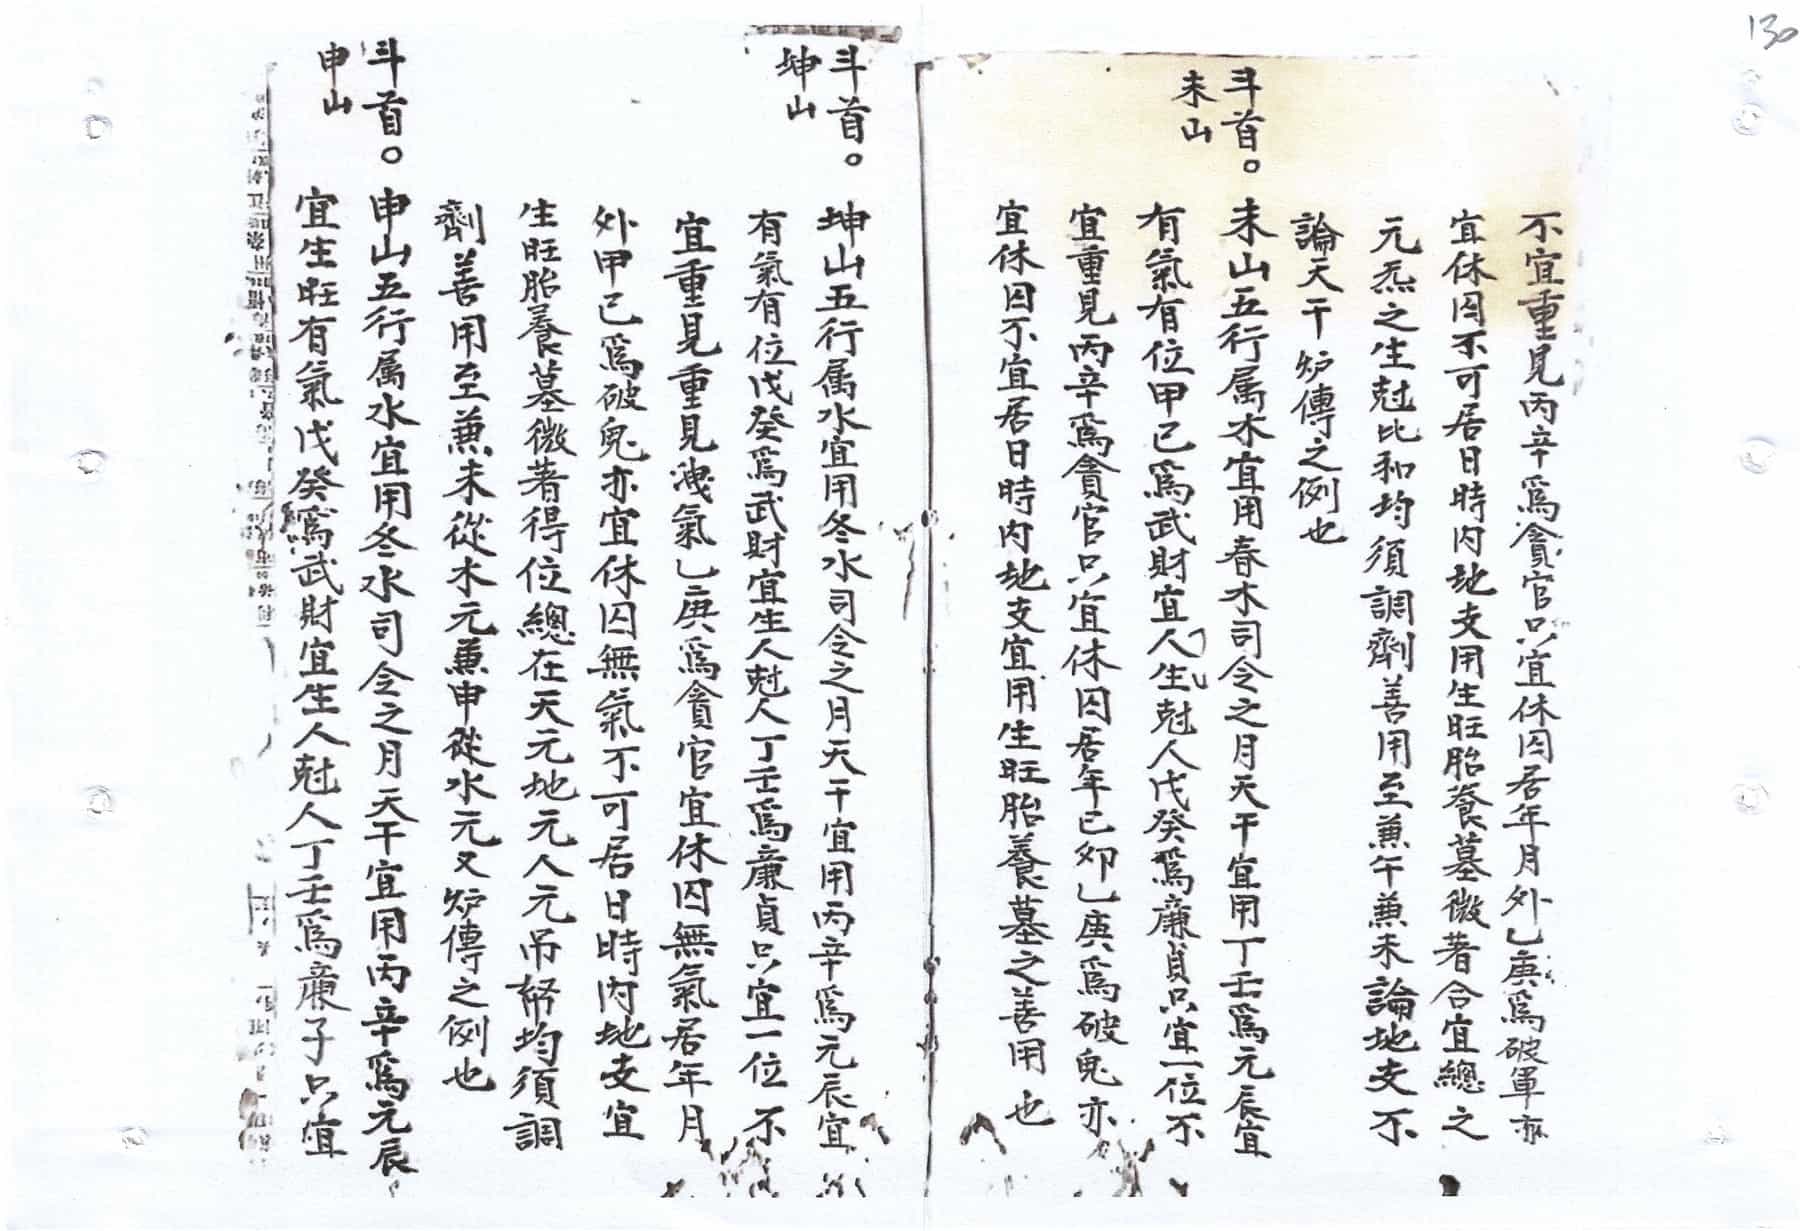 130
不宜重見丙辛爲貪官只宜休囚居年月外乙庚爲破軍亦
宜休囚不可居日時内地支用生旺胎養墓微著合宜總之
元炁之生尅比和均須調劑善用至兼午兼未論地支不
論天干炉傳之例也
斗首。
未山
未山五行属木宜用春木司令之月天干宜用丁壬爲元辰宜
有氣有位甲己爲武財宜人生尅人戊癸爲廉貞只宜一位不
宜重見丙辛爲貪官只宜休囚居年月外乙庚爲破鬼亦
宜休囚不宜居日時内地支宜用生旺胎養墓之善用也
斗首。
坤山
坤山五行属水宜用冬水司令之月天干宜用丙辛爲元辰宜
有氣有位戊癸爲武財宜生人尅人丁壬爲廉貞只宜一位不
宜重見重見洩氣乙庚爲貪官宜休囚無氣居年月
外甲己爲破鬼亦宜休囚無氣不可居日時内地支宜
生旺胎養墓微著得位總在天元地元人元吊帑均須調
劑善用至兼未從木元兼申從水元又炉傳之例也
斗首。
申山
申山五行属水宜用冬水司令之月天干宜用丙辛爲元辰
宜生旺有氣戊癸爲武財宜生人尅人丁壬爲廉子只宜